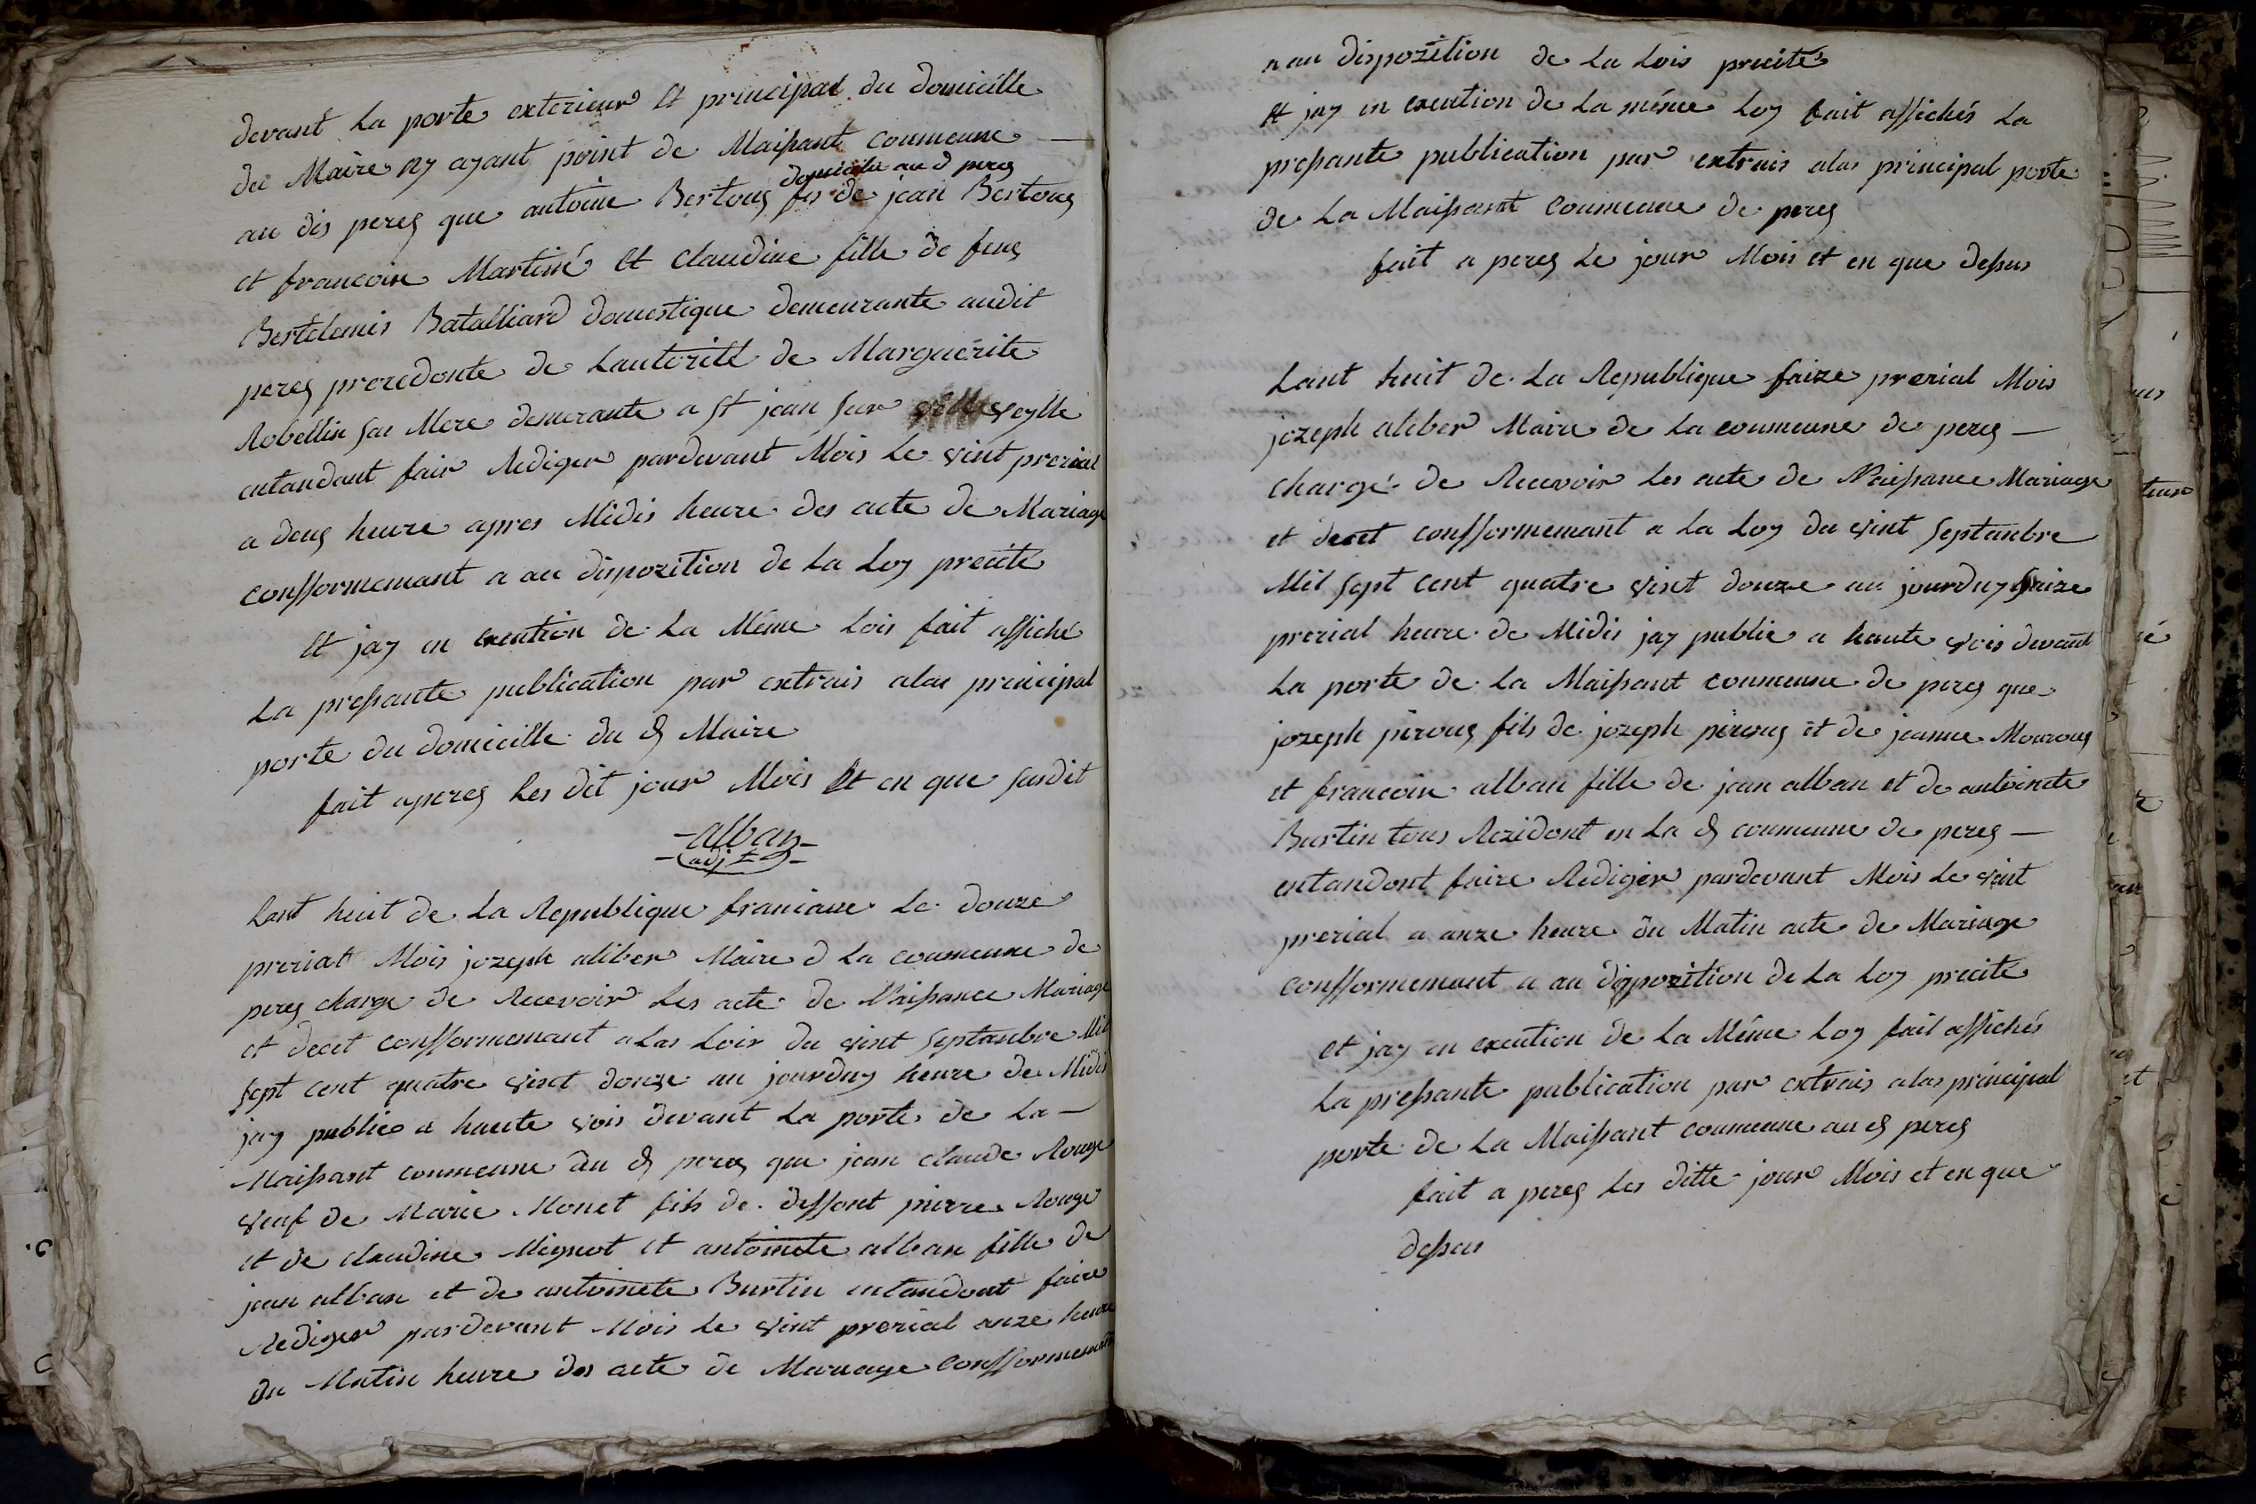 devant La porte exterieur et principal du domicille
du Maire ny ayant point de Maissant Coumeune
domicilie au d peres
au dis peres que antoine Bertous fis de jean Bertous
et francoise Martiné et Claudine fille de feus
Bertelemis Batalliard domestique demeurante audit
peres procedonte de Lautorité de Marguerite
Robellin sa Mere demerante a st jean sur veylle
entandant fair Rediger pardevant Mois Le vint prerial
a deus heure apres Midis heure des acte de Mariage
confformemant a au disposition de La Loy precité
Et jay en excution de La Méme Lois fait affiché
La pressante publication par extrais alas principal
porte du domicille du d Maire
fait aperes Les dit jour Mois Et en que susdit
Alban
adjt
Lant huit de La Republique franciaise Le douze
prerial Mois jozeph aliber Maire d La coumeune de
peres charge de Recevoir Les acte de Naissance Mariage
et decet confformemant alas Loix du vint septanbre Mil
sept cent quatre vint douze au jourduy heure de Midis
jay publie a haute vois devant La porte de La
Maissant coumeune du d peres que jean claude Rouge
veuf de Marie Monet fils de deffont pierre Rouge
et de claudine Mignot et antoinete alban fille de
jean alban et de antoinete Burtin entandont faire
Rediger pardevant Mois Le vint prerial onze heure
du Matin heure des acte de Mariage confformemant
a au dispozition de La Lois precite
et jay en excution de La méme Loy fait affichés La
pressante publication par extrais alas principal porte
de La Maissant Coumeune de peres
fait a peres Le jour Mois et en que dessus
Lant huit de La Republique saize prerial Mois
jozeph aliber Maire de La coumeune de peres
chargé de Recevoir Les acte de Naissance Mariage
et decet confformemant a La Loy du vint septanbre
Mil sept cent quatre vint douze au jourduy saize
prerial heure de Midis jay publie a haute vois devant
La porte de La Maissant coumeune de peres que
jozeph perous fils de jozeph perous et de jeanne Mourous
et francoise alban fille de jean alban et de antoinete
Burtin tous Rezidont en La d coumeune de peres
entandont faire Rediger pardevant Mois Le vint
prerial a onze heure du Matin acte de Mariage
confformemant a au dispozition de La Loy precite
et jay en excution de La Méme Loy fait affichés
La pressante publication par extrais alas principal
porte de La Maissant coumeune au d peres
fait a peres Les ditte jour Mois et en que
dessus